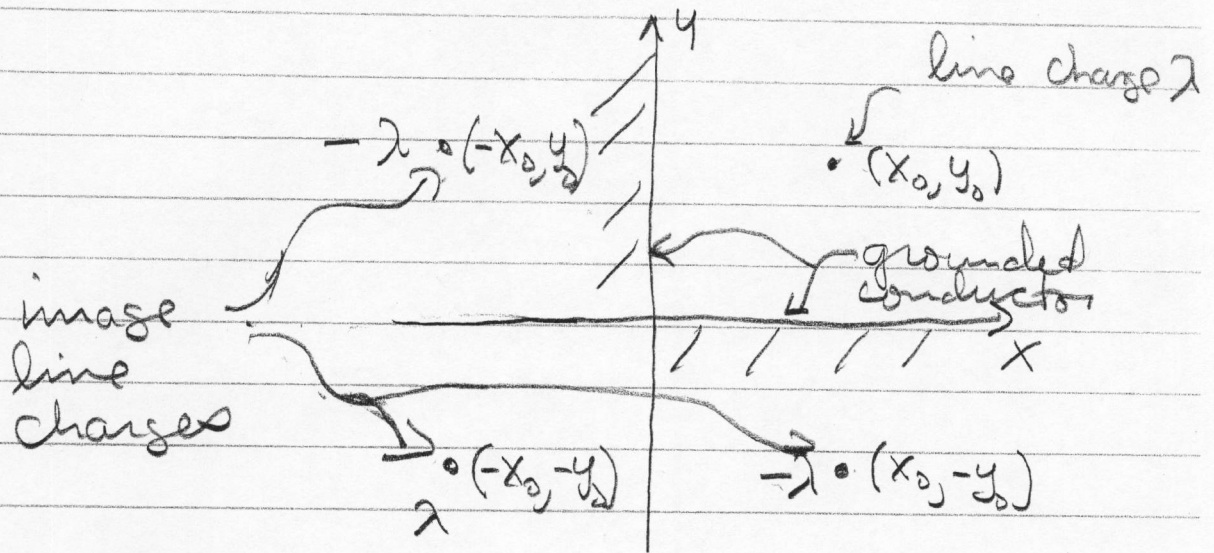 y
line charge λ
-λ • (-x₀, y₀)
• (x₀, y₀)
grounded
conductor
image
line
charges
x
• (-x₀, -y₀)
λ
-λ • (x₀, -y₀)